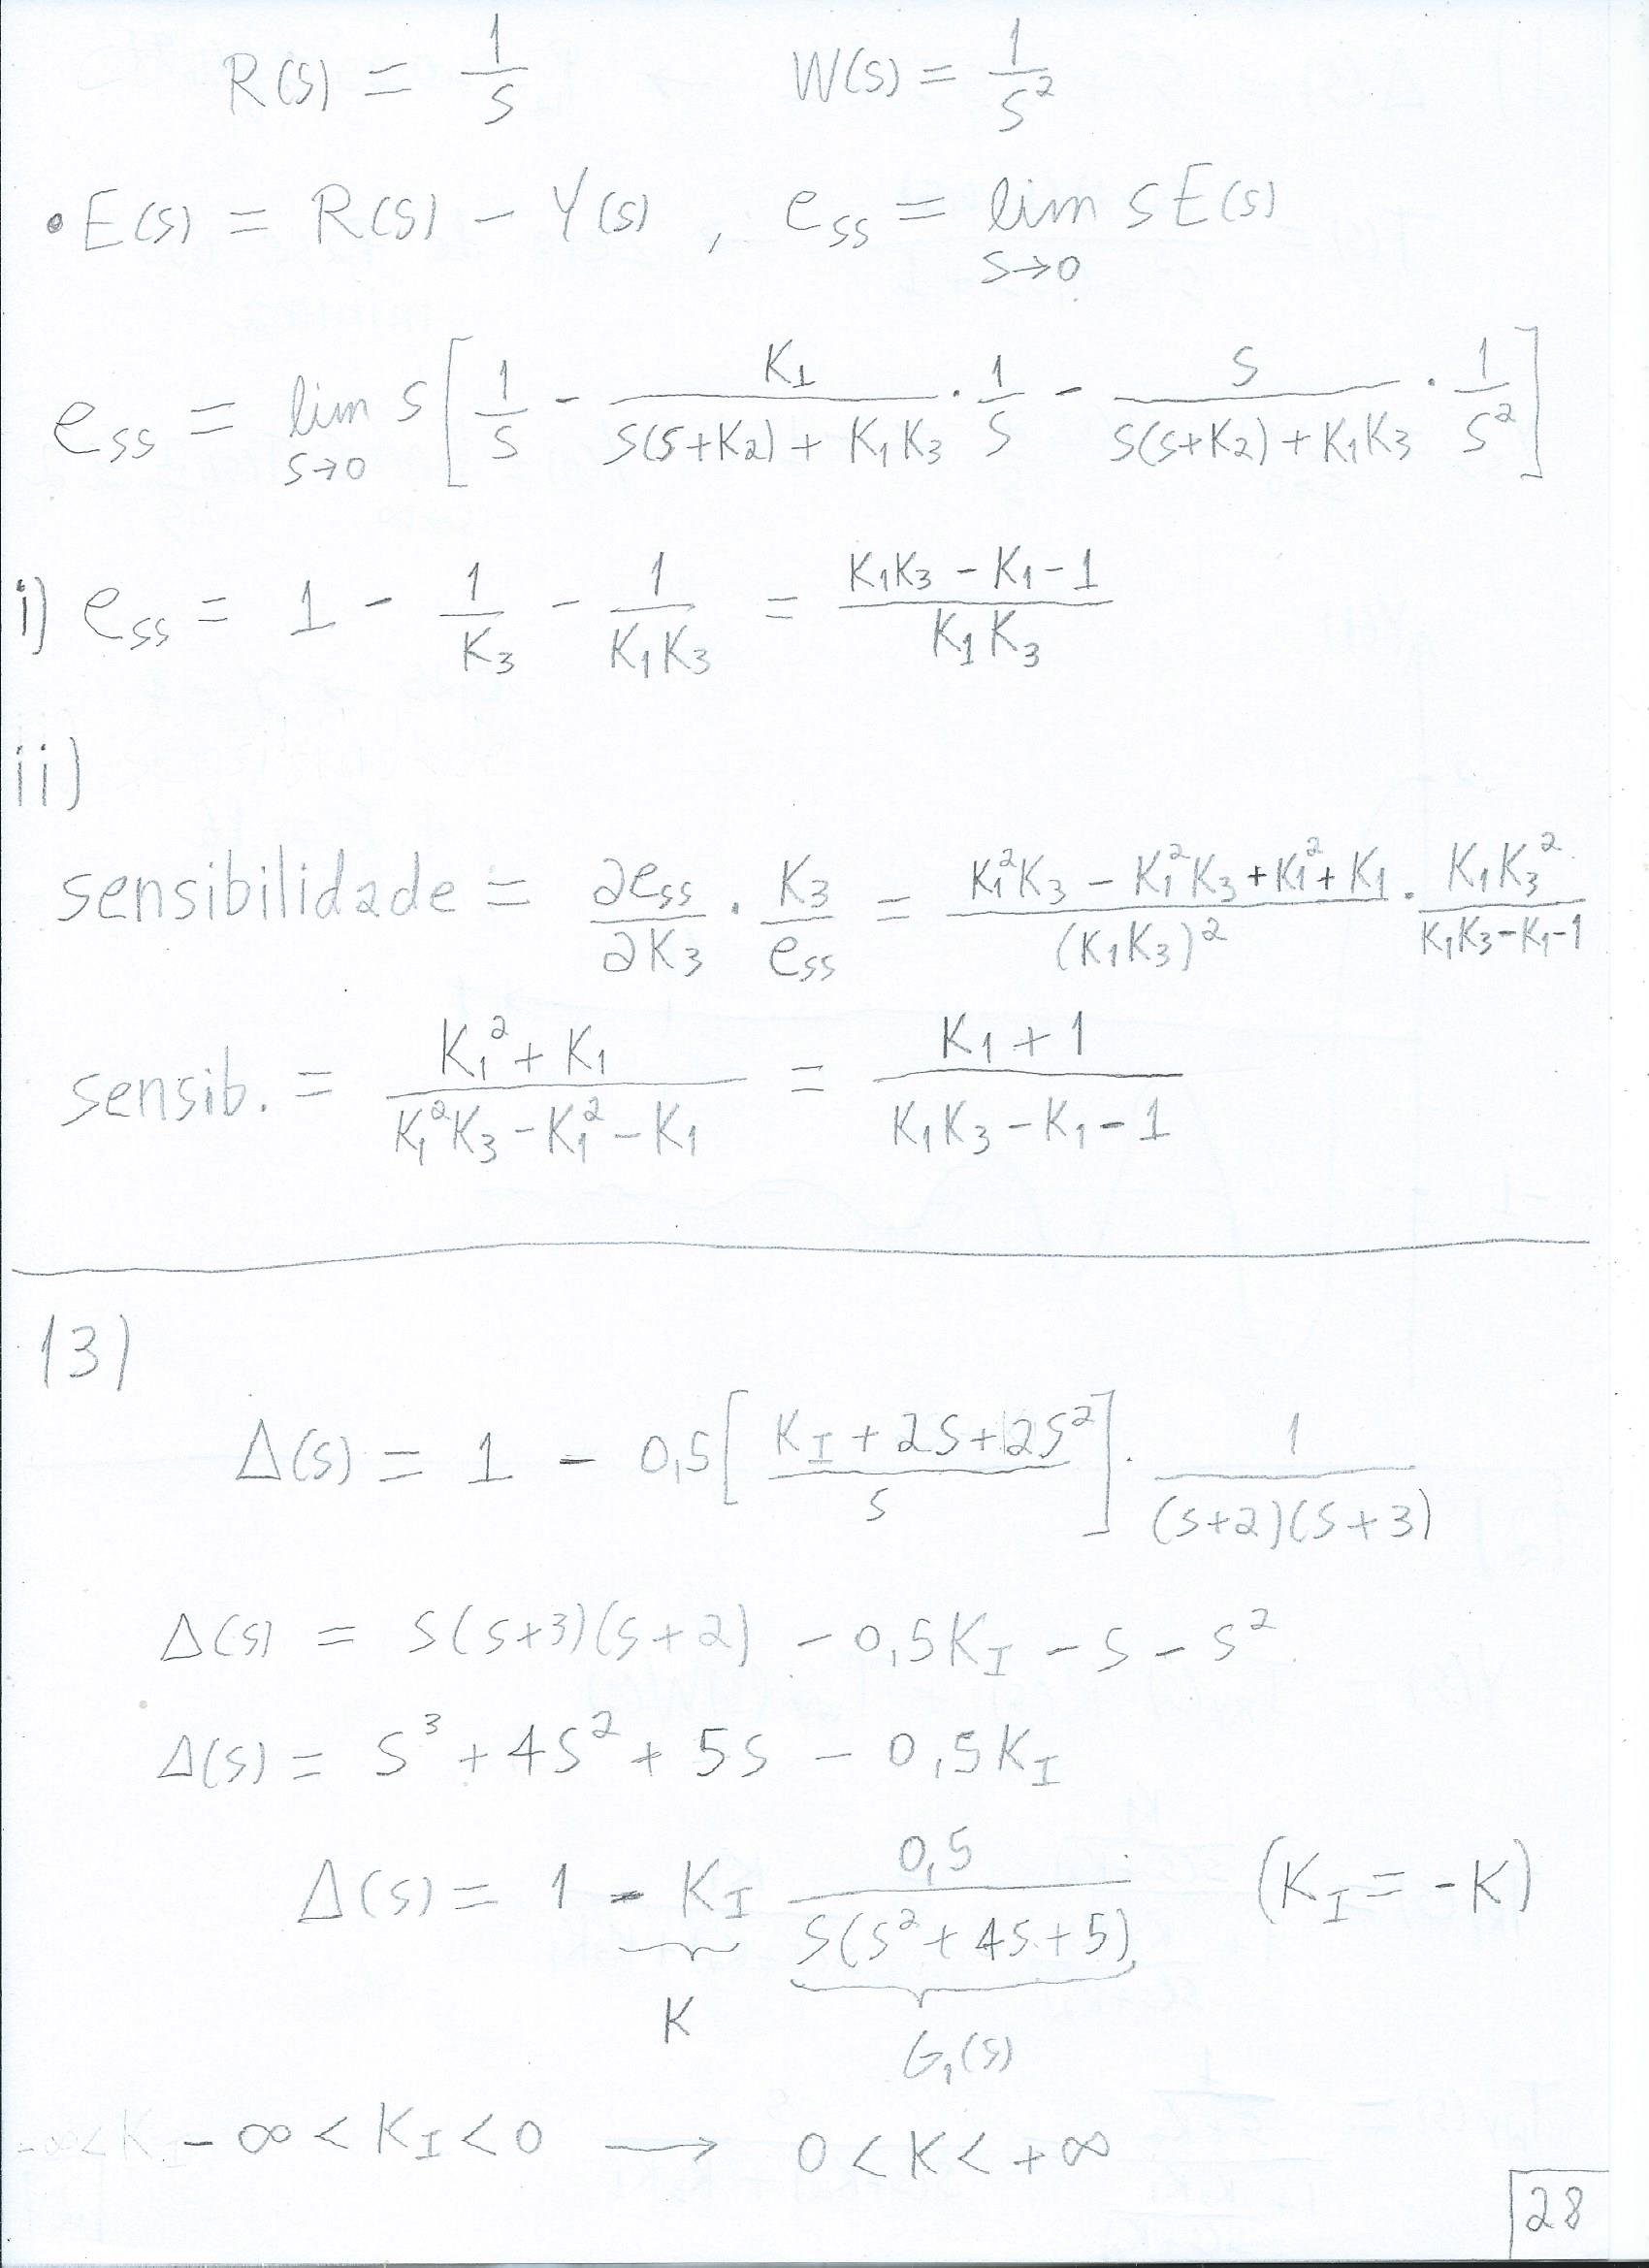 R(s) = 1/s    W(s) = 1/s²
• E(s) = R(s) - Y(s) , e_ss = lim_{s→0} sE(s)
e_ss = lim_{s→0} s[1/s - K₁/(s(s+K₂) + K₁K₃) · 1/s - s/(s(s+K₂) + K₁K₃) · 1/s²]
i) e_ss = 1 - 1/K₃ - 1/(K₁K₃) = (K₁K₃ - K₁ - 1)/(K₁K₃)
ii)
sensibilidade = ∂e_ss/∂K₃ · K₃/e_ss = (K₁²K₃ - K₁²K₃ + K₁² + K₁)/(K₁K₃)² · K₁K₃²/(K₁K₃ - K₁ - 1)
sensib. = (K₁² + K₁)/(K₁²K₃ - K₁² - K₁) = (K₁ + 1)/(K₁K₃ - K₁ - 1)
13)
Δ(s) = 1 - 0,5[(K_I + 2s + 2s²)/s] · 1/((s+2)(s+3))
Δ(s) = s(s+3)(s+2) - 0,5K_I - s - s²
Δ(s) = s³ + 4s² + 5s - 0,5K_I
Δ(s) = 1 - K_I 0,5/(s(s² + 4s + 5))    (K_I = -K)
K    G₁(s)
-∞ < K_I < 0 → 0 < K < +∞
28